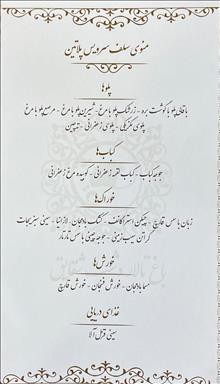 منوی سلف سرویس پلاتین
پلوها
باقالی پلو با گوشت بره - زرشک پلو با مرغ - شیرین پلو با مرغ - مرصع پلو با مرغ
پلوی مکزیکی - پلوی زعفرانی - ته‌چین
کباب‌ها
جوجه کباب - کباب لقمه زعفرانی - کوبیده مرغ زعفرانی
خوراک‌ها
زبان با سس قارچ - چیکن استراگانف - کشک بادمجان - لازانیا - سینی سبزیجات
گراتن سیب‌زمینی - جوجه چینی با سس تارتار
خورش‌ها
مسما بادمجان - خورش فسنجان - خورش قارچ
غذای دریایی
سینی قزل آلا
باغ تالار